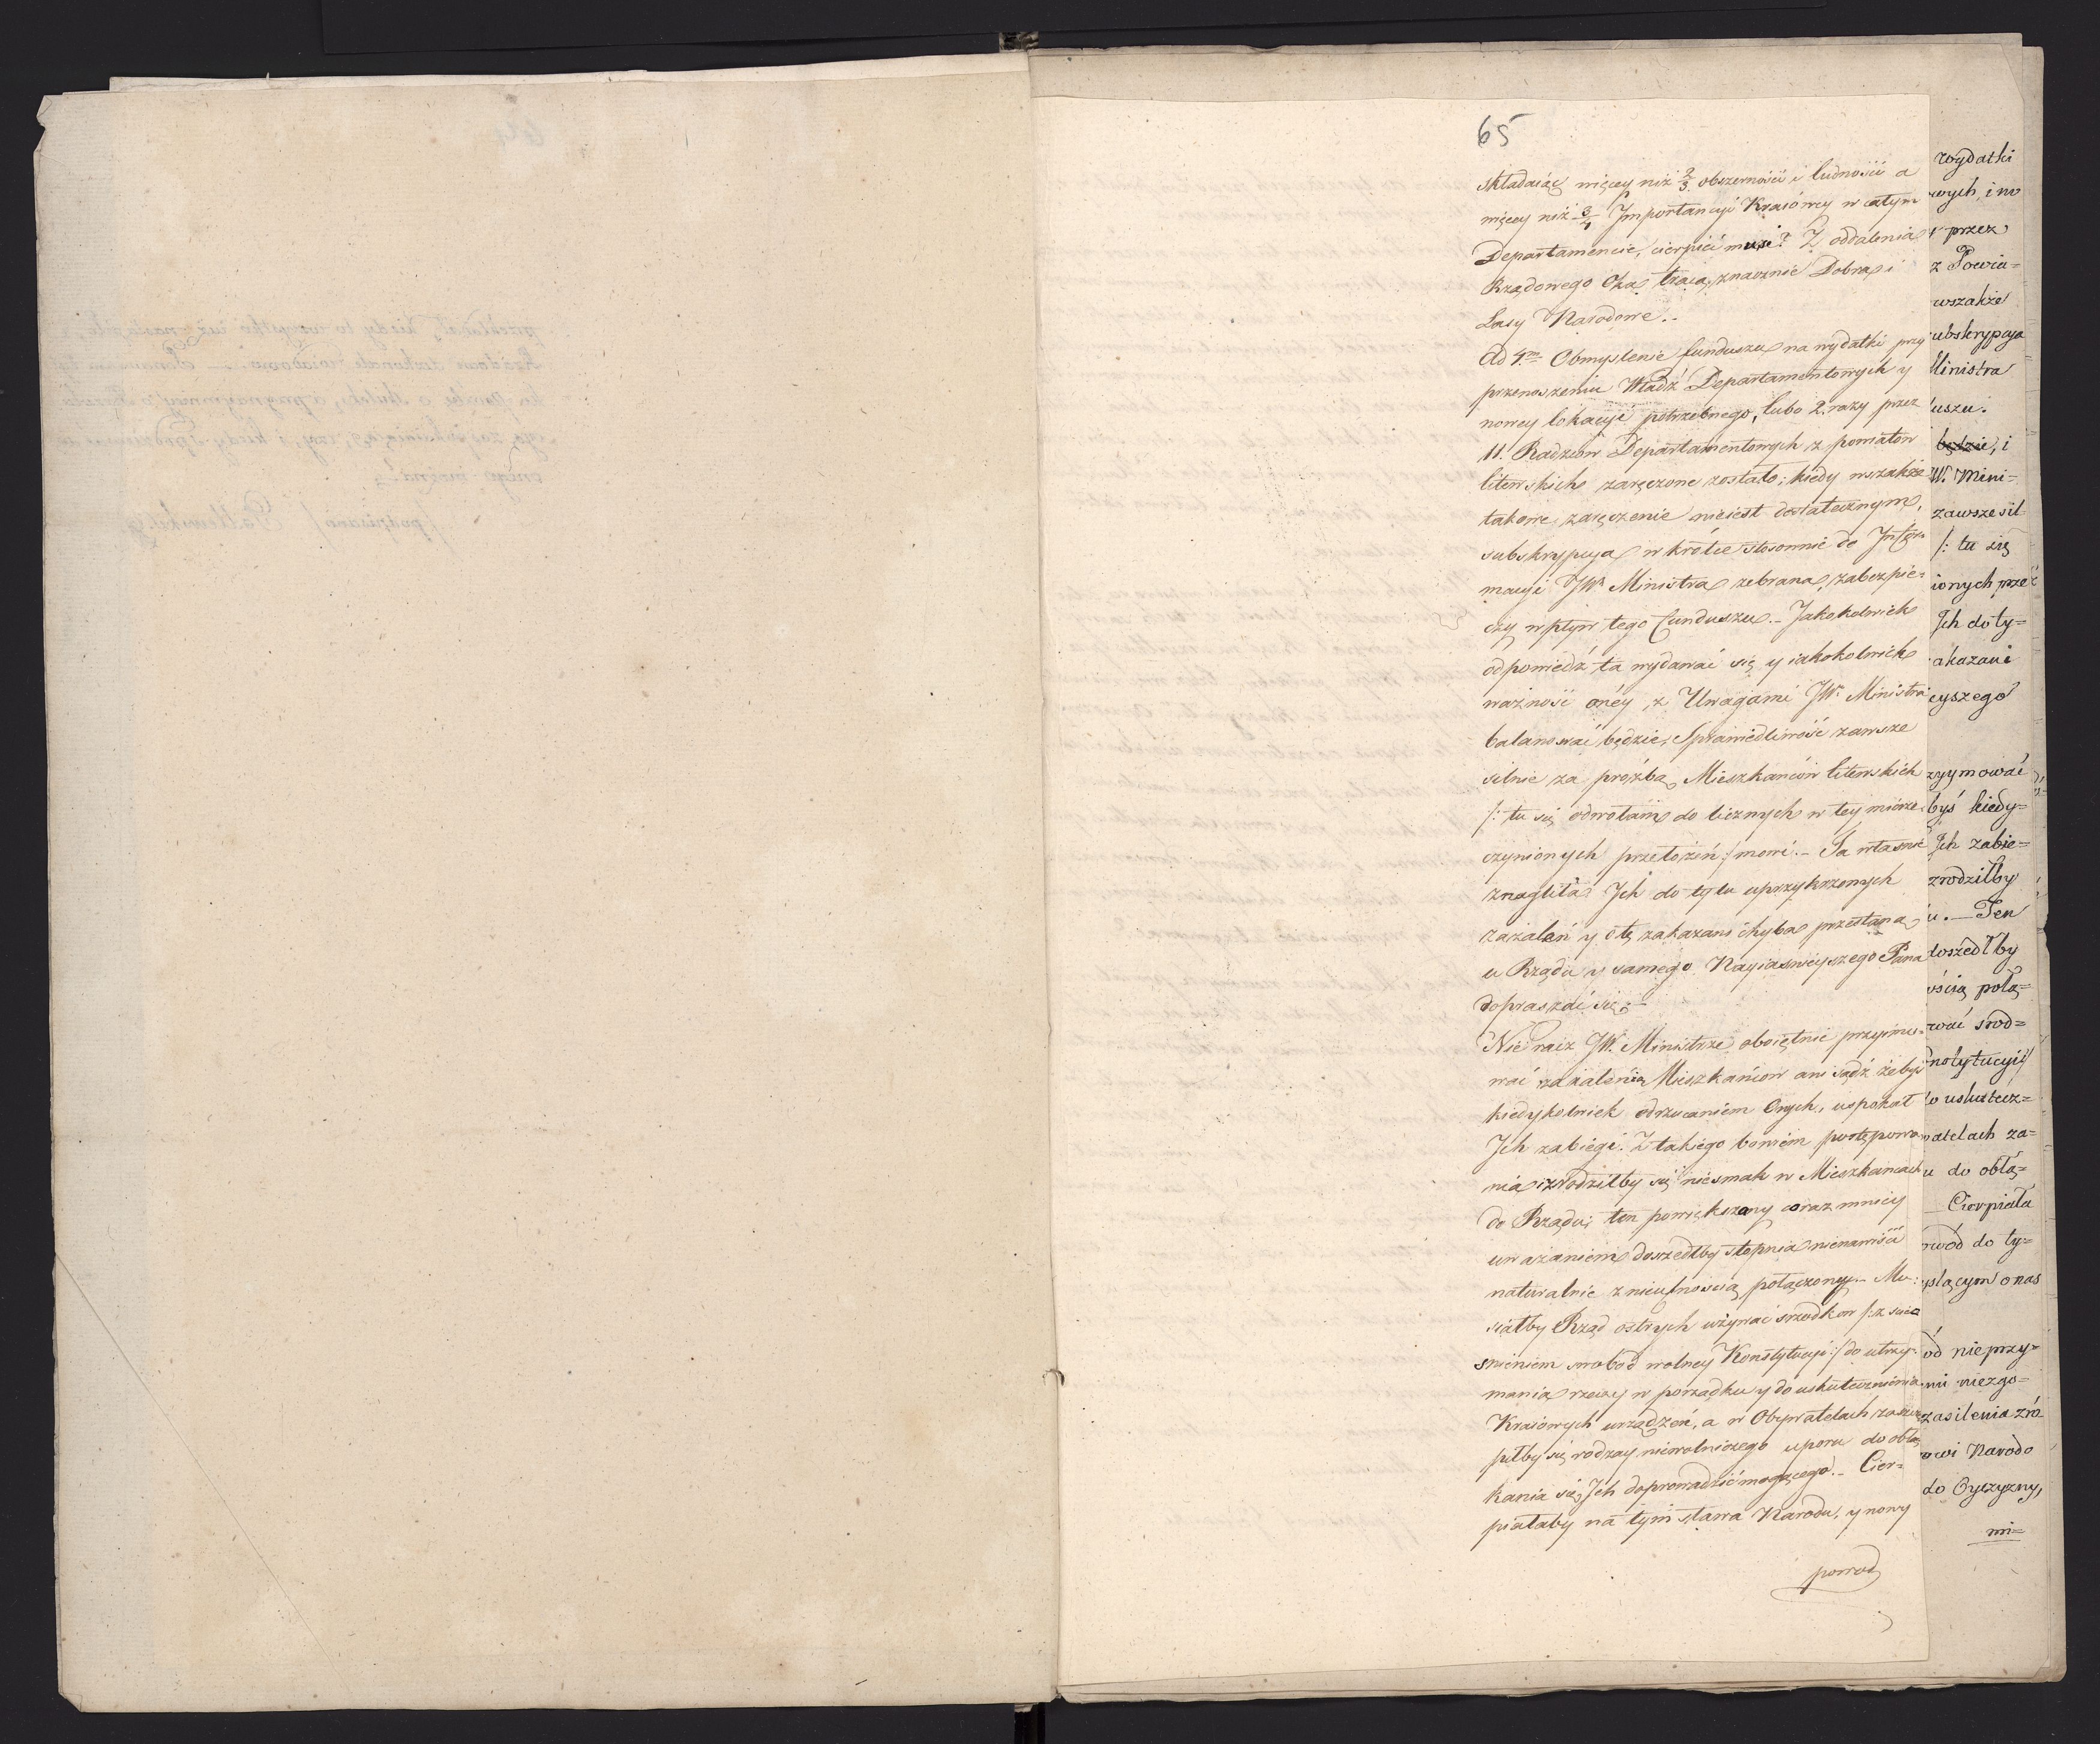 65
składaiąc więcey niż 2/3 obszerności i ludności a
więcey niż 3/4 Importancyi Kraiowey w całym
Departamencie, cierpieć musi? Z oddalenia
Rządowego Oka tracą znacznie Dobra i
Lasy Narodowe.-
Ad 4m. Obmyslenie funduszu na wydatki przy
przenoszeniu Władź Departamentowych y
nowey lokacyi potrzebnego, lubo 2. razy przez
11. Radzców Departamentowych z powiatow
litewskich zaręczone zostało; kiedy wszakże
takowe zaręczenie nieiest dostatecznym,
subskrypcya w krotce stosownie do Infor-
macyi JW. Ministra zebrana, zabezpie-
czy wpływ tego funduszu.- Jakokolwiek
odpowiedź ta wydawać się y iakokolwiek
ważność oney, z Uwagami JW. Ministra
balansować będzie, Sprawiedliwość zawsze
silnie za proźbą Mieszkańców litewskich
/: tu się odwołam do licznych w tey mierze
czynionych przełożeń :/ mowi.- Ta własnie
znagliła Ich do tylu uprzykrzonych
zażaleń y o tę zakazani chyba przestaną
u Rządu y samego Nayiasnieyszego Pana
dopraszać się.-
Nie racz JW. Ministrze oboiętnie przyimo-
wać zażalenia Mieszkańcow ani sądź żebyś
kiedykolwiek odrzucaniem Onych, uspokoił
Ich zabiegi. Z takiego bowiem postępowa-
nia zrodziłby się niesmak w Mieszkancach
do Rządu; ten powiększony coraz mniey
uważaniem doszedłby stopnia nienawiści
naturalnie z nieufnością połączoney.- Mu-
siałby Rząd ostrych używać srzodkow /: z scie-
snieniem swobod wolney Konstytucyi :/ do utrzy-
mania rzeczy w porządku y do uskutecznienia
Kraiowych urządzeń, a w Obywatelach zaszcze-
piłby się rodzay niewolniczego uporu do obłą-
kania się Ich doprowadzić mogącego.- Cier-
piałaby na tym sława Narodu, y nowy
powod
wydatki
wych, i no
przez
z Powia=
wszakże
ubskrypcya
Ministra
uszu.
będzie, i
W. Mini=
zawsze sil
/: tu się
ionych prze
Ich do ty=
akazani
eyszego
zyymować
byś kiedy=
Ich zabie=
zrodziłby
u.— Ten
doszedłby
ością połą=
wać srod=
nstytucyi/
o uskutecz=
atelach za=
u do obłą=
Cierpiała
wód do ty=
yslącym o nas
ód nie przy=
mi niezgo=
zasilenia zró
owi Narodo
do Oyczyzny,
mi=